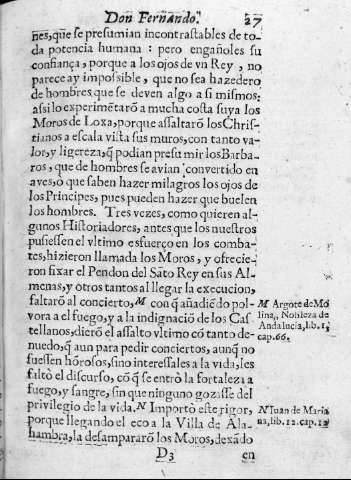 Don Fernando. 27
ñes, que se presumian incontrastables de to-
da potencia humana: pero engañoles su
confiança, porque a los ojos de vn Rey, no
parece ay impossible, que no sea hazedero
de hombres que se deven algo a si mismos:
assi lo experimẽtarõ a mucha costa suya los
Moros de Loxa, porque assaltarõ los Chris-
tianos a escala vista sus muros, con tanto va-
lor, y ligereza, q̃ podian presumir los Barba-
ros, que de hombres se avian convertido en
aves, ò que saben hazer milagros los ojos de
los Principes, pues pueden hazer que buelen
los hombres. Tres vezes, como quieren al-
gunos Historiadores, antes que los nuestros
pusiessen el vltimo esfuerço en los comba-
tes, hizieron llamada los Moros, y ofrecie-
ron fixar el Pendon del Sãto Rey en sus Al-
menas, y otros tantos al llegar la execucion,
faltarõ al concierto, M con q̃ añadiẽdo pol-
vora a el fuego, y a la indignaciõ de los Cas-
tellanos, dierõ el assalto vltimo cõ tanto de-
nuedo, q̃ aun para pedir conciertos, aunq̃ no
fuessen hõrosos, sino interessales a la vida, les
faltò el discurso, cõ q̃ se entrò la fortaleza a
fuego, y sangre, sin que ninguno gozasse del
privilegio de la vida. N Importò este rigor,
porque llegando el eco a la Villa de Ala-
hambra, la desampararõ los Moros, dexãdo
D3 en
M Argote de Mo
lina, Nobleza de
Andalucia, lib. 1.
cap. 66.
N Iuan de Maria
na, lib. 12. cap. 12